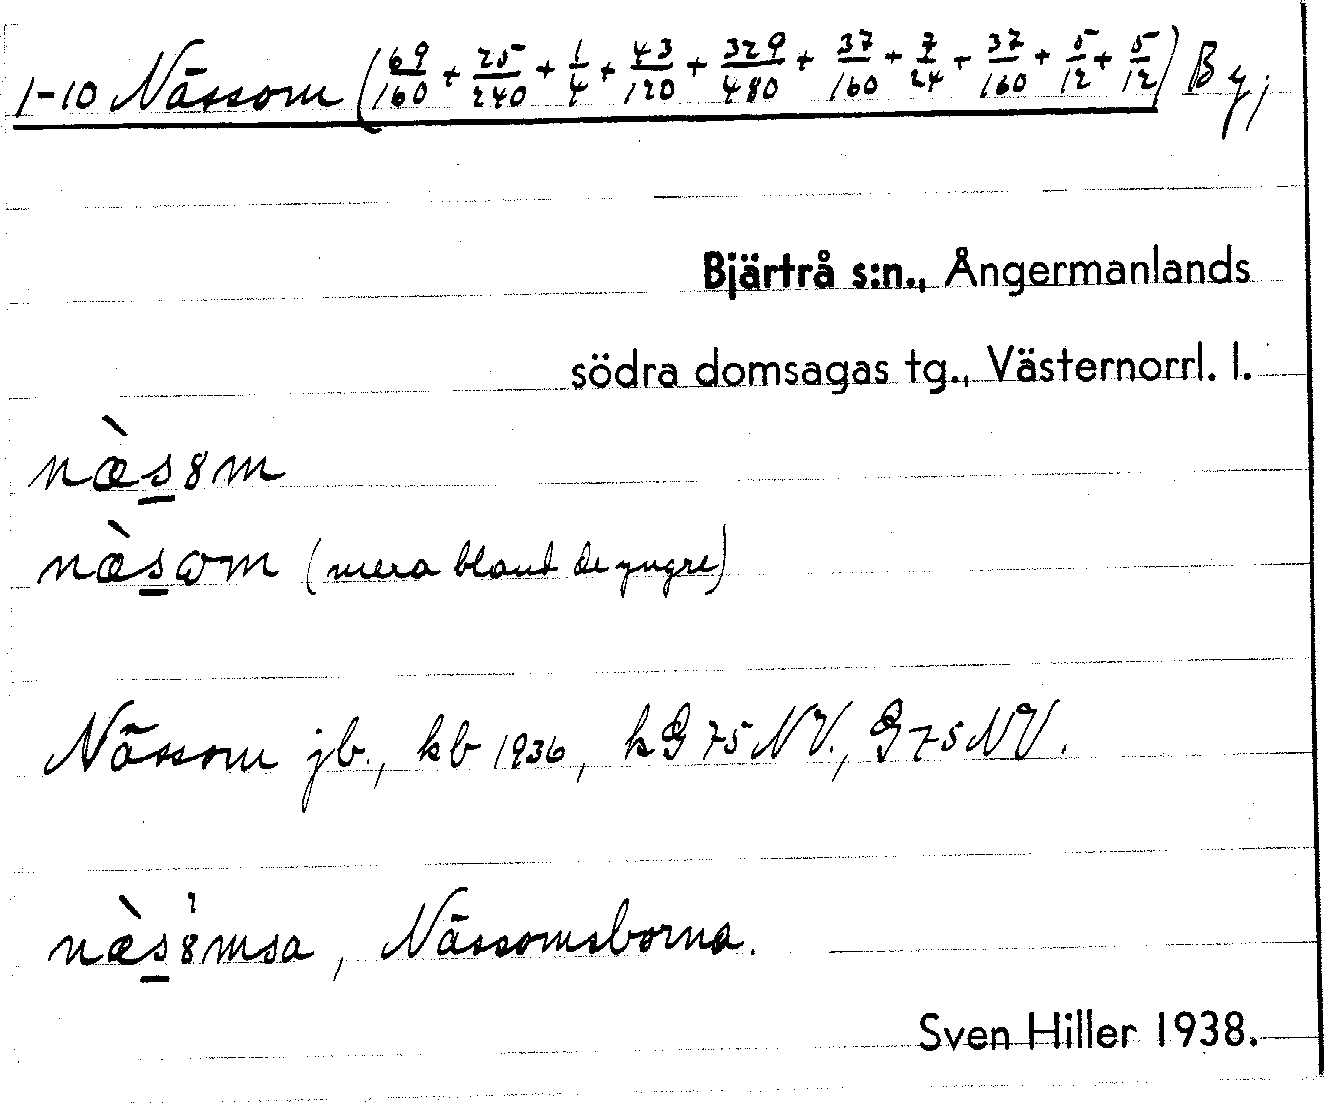 1-10 Nässom (69/160 + 25/240 + 1/4 + 43/120 + 329/480 + 37/160 + 7/24 + 37/160 + 5/12 + 5/12) By;
Bjärtrå s:n., Ångermanlands
södra domsagas tg., Västernorrl. l.
næ̀s̲8m
næ̀s̲ωm (mera bland de yngre)
Nässom jb., kb 1936, hG 75 NV., G 75 NV.
næ̀s̲8msa, Nässomsborna.
Sven Hiller 1938.